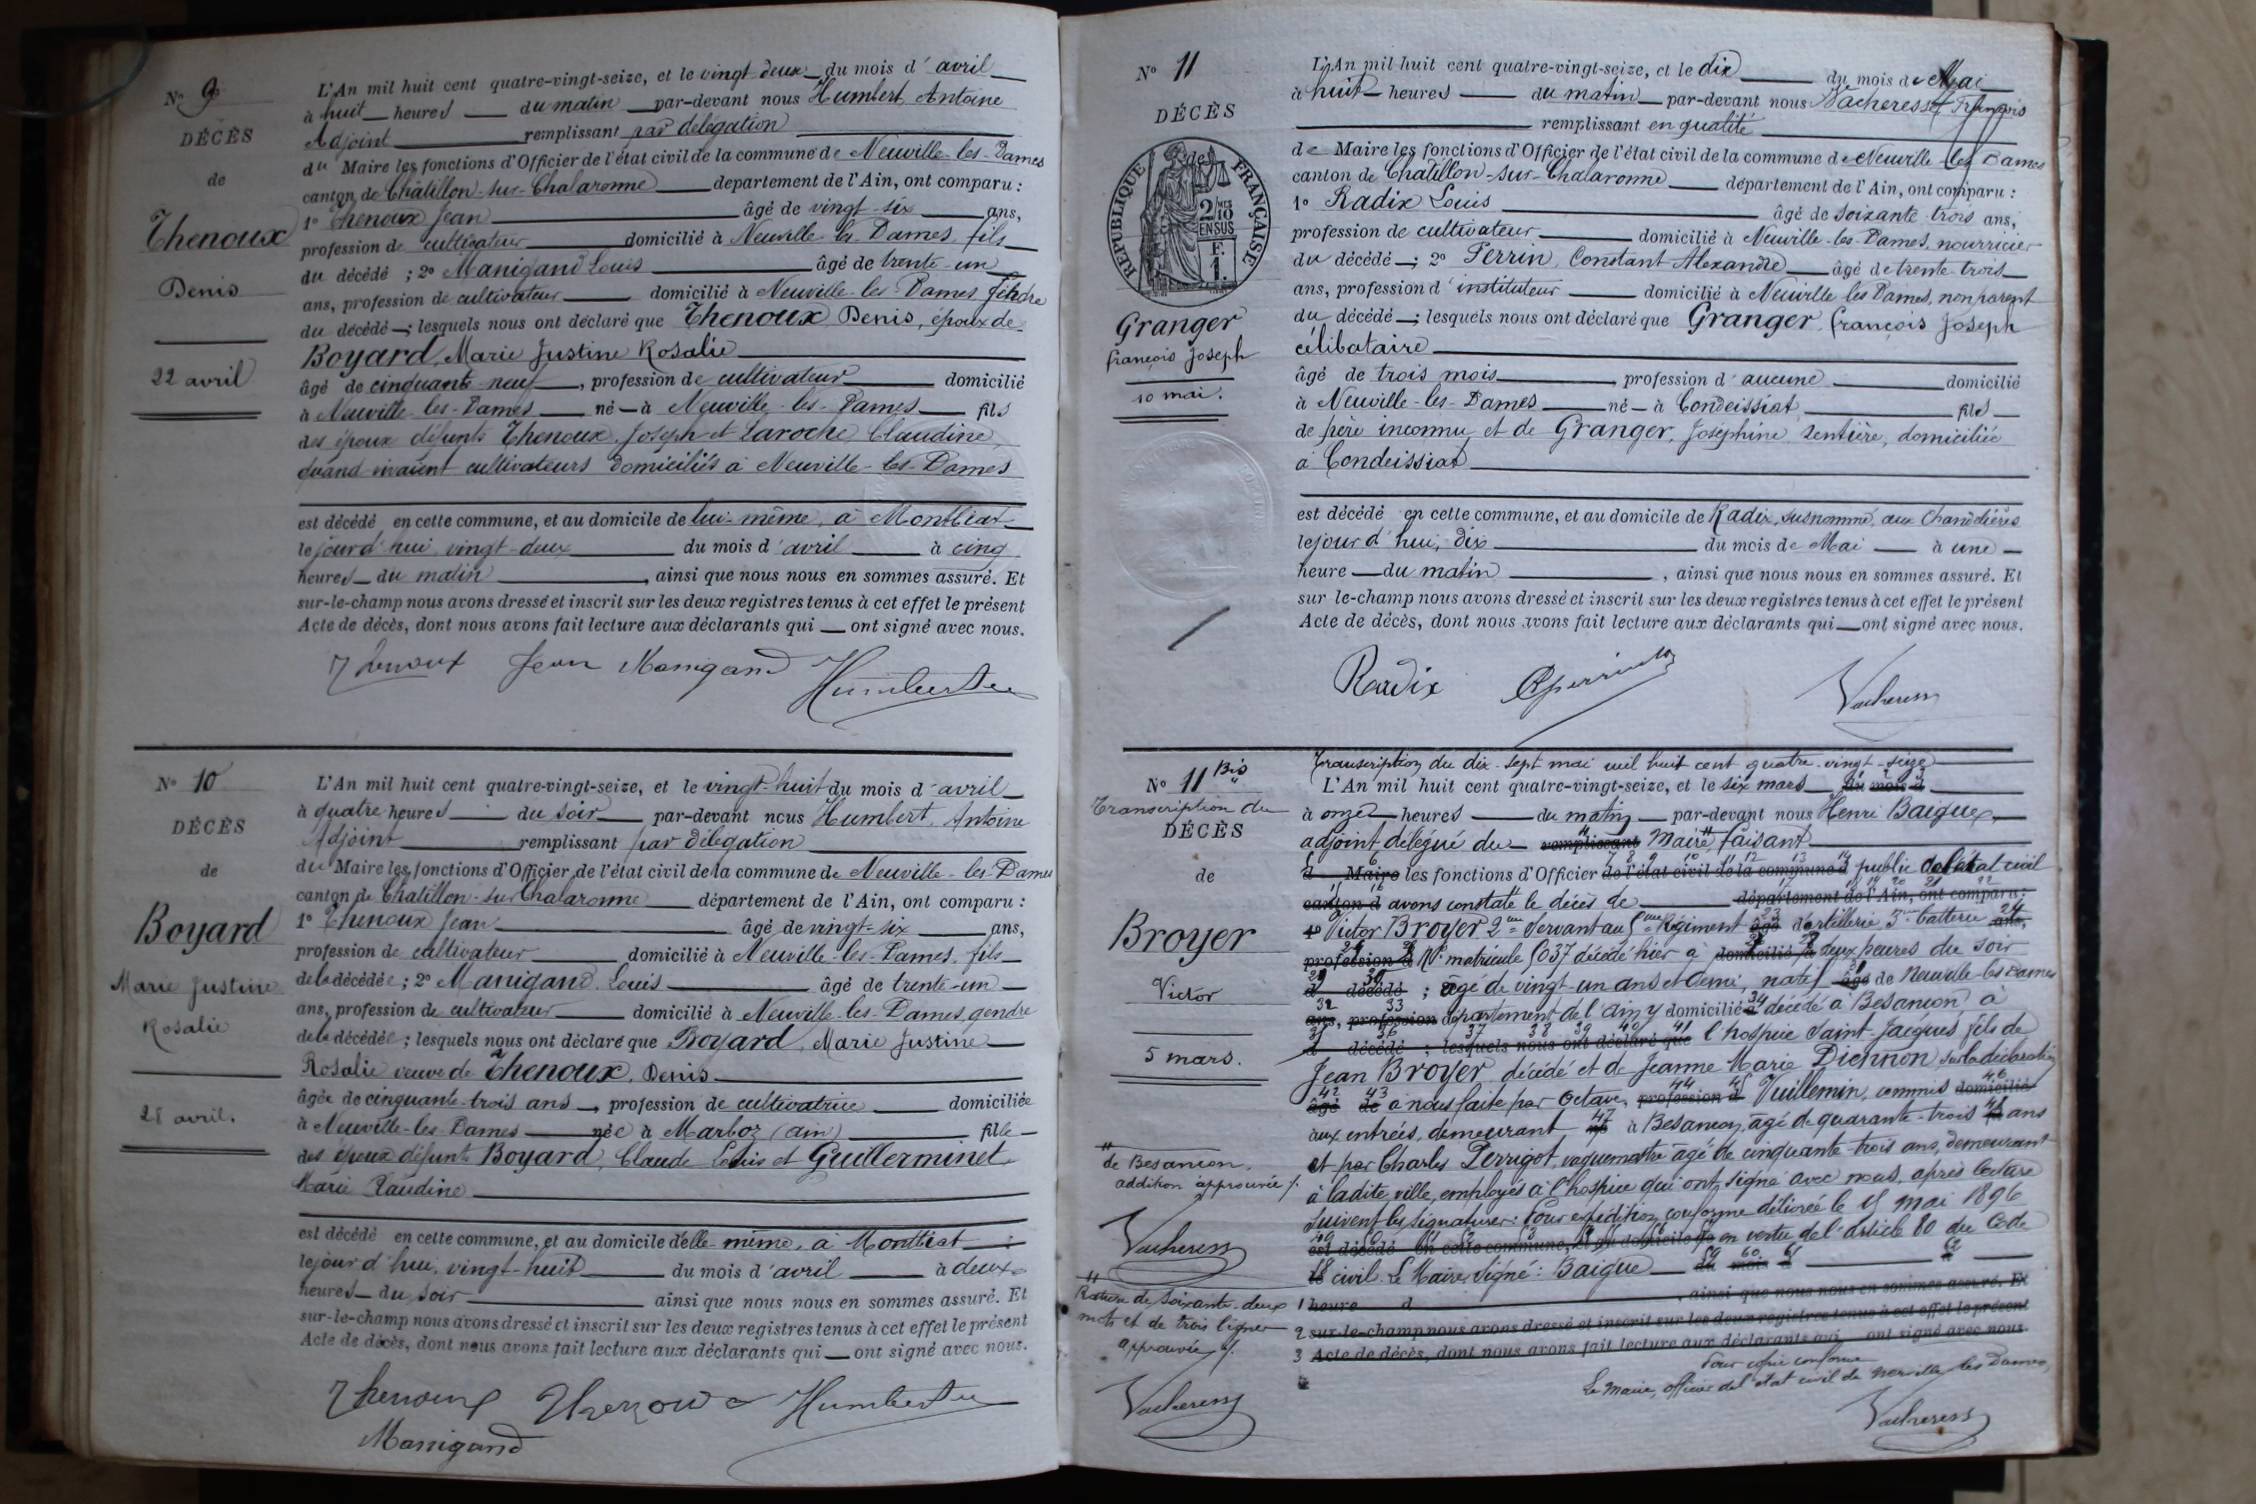 N° 9
DÉCÈS
de
Thenoux
Denis
22 avril
L'An mil huit cent quatre-vingt-seize, et le vingt deux du mois d'avril
à huit heures du matin par-devant nous Humbert Antoine
Adjoint remplissant par délégation
du Maire les fonctions d'Officier de l'état civil de la commune de Neuville-les-Dames
canton de Châtillon-sur-Chalaronne département de l'Ain, ont comparu :
1° Thenoux Jean âgé de vingt-six ans,
profession de cultivateur domicilié à Neuville-les-Dames, fils
du décédé ; 2° Manigand Louis âgé de trente-un
ans, profession de cultivateur domicilié à Neuville-les-Dames,
du décédé ; lesquels nous ont déclaré que Thenoux Denis, époux de
Boyard, Marie Justine Rosalie
âgé de cinquante-neuf, profession de cultivateur domicilié
à Neuville-les-Dames né à Neuville-les-Dames fils
des époux défunts Thenoux, Joseph et Laroche Claudine,
quand vivaient cultivateurs domiciliés à Neuville-les-Dames
est décédé en cette commune, et au domicile de lui-même, à Montbéat
le jour d'hui vingt-deux du mois d'avril à cinq
heures du matin, ainsi que nous nous en sommes assuré. Et
sur-le-champ nous avons dressé et inscrit sur les deux registres tenus à cet effet le présent
Acte de décès, dont nous avons fait lecture aux déclarants qui ont signé avec nous.
Thenoux Jean Manigand Humbert
N° 10
DÉCÈS
de
Boyard
Marie Justine
Rosalie
28 avril.
L'An mil huit cent quatre-vingt-seize, et le vingt-huit du mois d'avril
à quatre heures du soir par-devant nous Humbert, Antoine
Adjoint remplissant par délégation
du Maire les fonctions d'Officier de l'état civil de la commune de Neuville-les-Dames
canton de Châtillon-sur-Chalaronne département de l'Ain, ont comparu :
1° Thenoux Jean âgé de vingt-six ans,
profession de cultivateur domicilié à Neuville-les-Dames, fils
de la décédée ; 2° Manigand Louis âgé de trente-un
ans, profession de cultivateur domicilié à Neuville-les-Dames, gendre
de la décédée ; lesquels nous ont déclaré que Boyard, Marie Justine
Rosalie veuve de Thenoux, Denis
âgée de cinquante-trois ans, profession de cultivatrice domiciliée
à Neuville-les-Dames née à Marboz (ain) fille
des époux défunts Boyard, Claude Louis et Guillerminet
Marie Claudine
est décédé en cette commune, et au domicile d'elle-même, à Montbéat
le jour d'hui, vingt-huit du mois d'avril à deux
heures du soir ainsi que nous nous en sommes assuré. Et
sur-le-champ nous avons dressé et inscrit sur les deux registres tenus à cet effet le présent
Acte de décès, dont nous avons fait lecture aux déclarants qui ont signé avec nous.
Thenoux Thenoux Humbert
Manigand
N° 11
DÉCÈS
de
RÉPUBLIQUE FRANÇAISE
2/10
EN SUS
F.
1.
Granger
françois Joseph
10 mai.
L'An mil huit cent quatre-vingt-seize, et le dix du mois de Mai
à huit heures du matin par-devant nous Vacheresse François
remplissant en qualité
de Maire les fonctions d'Officier de l'état civil de la commune de Neuville-les-Dames
canton de Châtillon-sur-Chalaronne département de l'Ain, ont comparu :
1° Radix Louis âgé de soixante-trois ans,
profession de cultivateur domicilié à Neuville-les-Dames, nourricier
du décédé ; 2° Perrin, Constant Alexandre âgé de trente-trois
ans, profession d'instituteur domicilié à Neuville les Dames, non parent
du décédé ; lesquels nous ont déclaré que Granger, françois Joseph
célibataire
âgé de trois mois, profession d'aucune domicilié
à Neuville-les-Dames né à Condeissiat, fils
de père inconnu et de Granger, Joséphine rentière, domiciliée
à Condeissiat
est décédé en cette commune, et au domicile de Radix, susnommé, aux Chaudières
le jour d'hui, dix du mois de Mai à une
heure du matin, ainsi que nous nous en sommes assuré. Et
sur le-champ nous avons dressé et inscrit sur les deux registres tenus à cet effet le présent
Acte de décès, dont nous avons fait lecture aux déclarants qui ont signé avec nous.
Radix CPerrin Vacheress
N° 11 Bis
Transcription du
DÉCÈS
de
Broyer
Victor
5 mars.
de Besançon,
addition approuvée
Vacheress
Rature de soixante-deux
mots et de trois lignes
approuvée
Vacheress
Transcription du dix-sept mai mil huit cent quatre-vingt-seize
L'An mil huit cent quatre-vingt-seize, et le six mars du mois d
à onze heures du matin par-devant nous Henri Baigue,
adjoint délégué du remplissant Maire, faisant
d Maire les fonctions d'Officier de l'état civil de la commune d public de l'état civil
canton d avons constaté le décès de département de l'Ain, ont comparu :
1° Victor Broyer 2me Servant au 5me Régiment âgé d'artillerie 3me batterie ans,
profession d N° matricule 5037 décédé hier à domicilié à deux heures du soir
d décédé ; âgé de vingt-un ans et demi, natif âgé de Neuville-les-Dames
ans, profession département de l'ain y domicilié à décédé à Besançon, à
d décédé ; lesquels nous ont déclaré que l'hospice Saint Jacques fils de
Jean Broyer, décédé et de Jeanne Marie Diennon, sur la déclaration
âgé de à nous faite par Octave, profession d Vuillemin, commis domicilié
aux entrées, demeurant né à Besançon, âgé de quarante-trois ans
et par Charles Perrigot, vaguemestre âgé de cinquante-trois ans, demeurant
à ladite ville, employés à l'hospice qui ont signé avec nous, après lecture
Suivent les signatures : Pour expédition conforme délivrée le 15 mai 1896
est décédé en cette commune, et au domicile de en vertu de l'article 80 du Code
le civil. Le Maire, signé : Baigue du mois d à
1 heure d, ainsi que nous nous en sommes assuré. Et
2 sur-le-champ nous avons dressé et inscrit sur les deux registres tenus à cet effet le présent
3 Acte de décès, dont nous avons fait lecture aux déclarants qui ont signé avec nous.
Pour copie conforme
Le Maire, officier de l'état civil de Neuville les Dames,
Vacheress